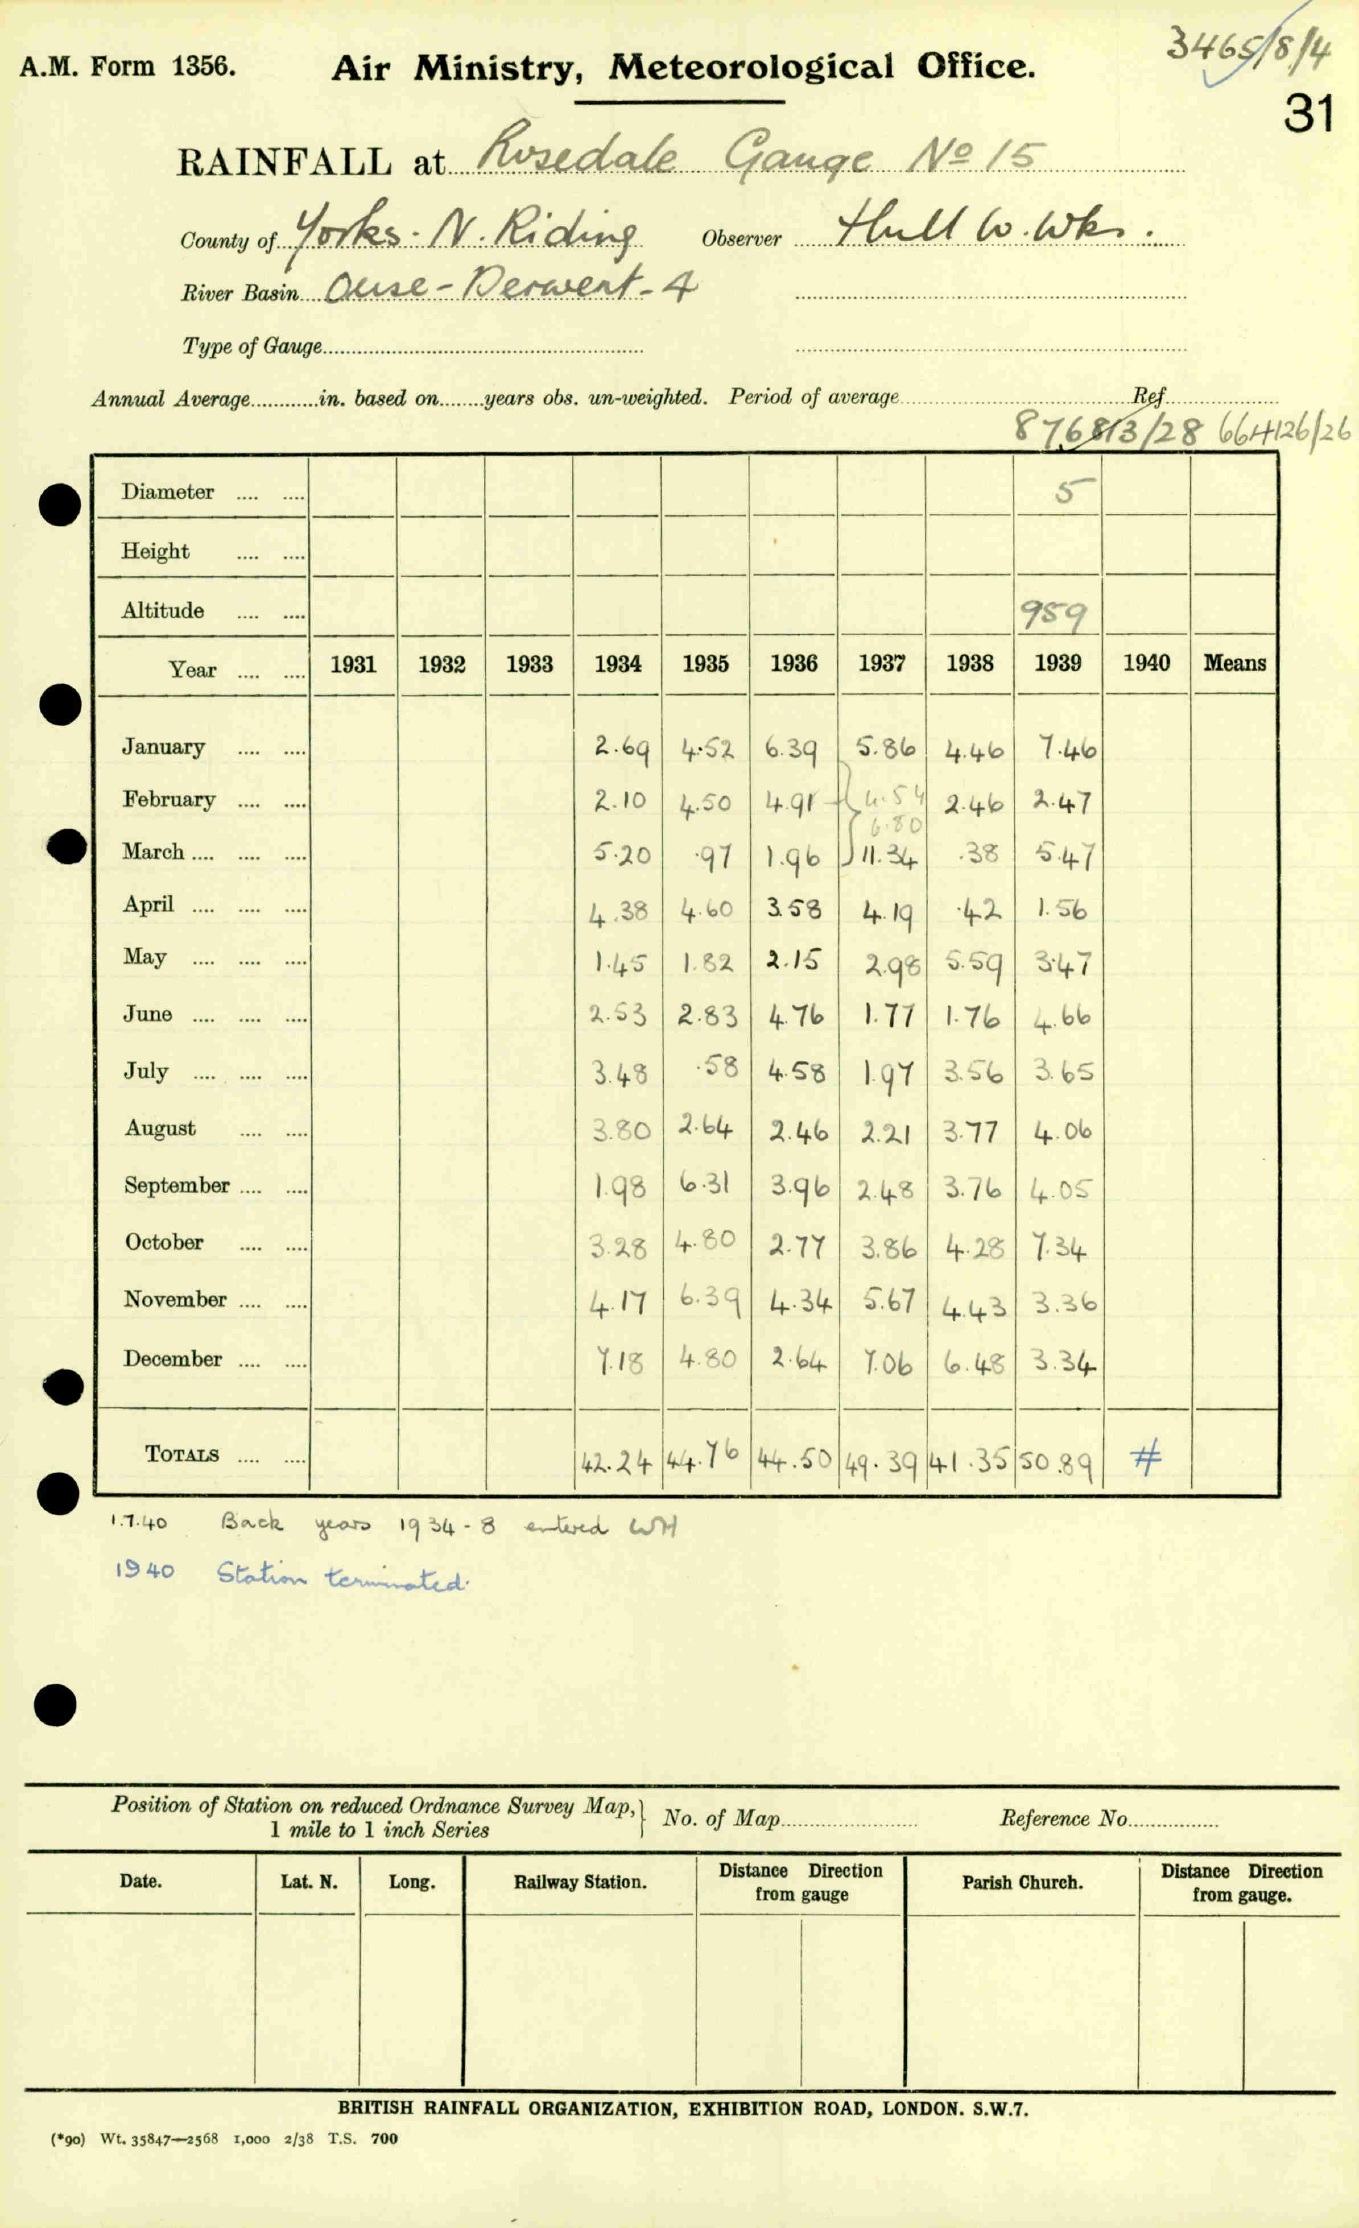 3465/8/4
A.M. Form 1356. Air Ministry, Meteorological Office.
31
RAINFALL at Rosedale Gauge No 15
County of Yorks. N. Riding Observer Hull W. Wks.
River Basin Ouse - Derwent - 4
Type of Gauge
Annual Average in. based on years obs. un-weighted. Period of average Ref
876813/28 664126/26
Diameter 5
Height
Altitude 959
Year 1931 1932 1933 1934 1935 1936 1937 1938 1939 1940 Means
January 2.69 4.52 6.39 5.86 4.46 7.46
February 2.10 4.50 4.91 4.54 2.46 2.47
6.80
March 5.20 .97 1.96 11.34 .38 5.47
April 4.38 4.60 3.58 4.19 .42 1.56
May 1.45 1.82 2.15 2.98 5.59 3.47
June 2.53 2.83 4.76 1.77 1.76 4.66
July 3.48 .58 4.58 1.97 3.56 3.65
August 3.80 2.64 2.46 2.21 3.77 4.06
September 1.98 6.31 3.96 2.48 3.76 4.05
October 3.28 4.80 2.77 3.86 4.28 7.34
November 4.17 6.39 4.34 5.67 4.43 3.36
December 7.18 4.80 2.64 7.06 6.48 3.34
TOTALS 42.24 44.76 44.50 49.39 41.35 50.89 #
1.7.40 Back years 1934-8 entered WH
1940 Station terminated.
Position of Station on reduced Ordnance Survey Map, } No. of Map Reference No
1 mile to 1 inch Series
Date. Lat. N. Long. Railway Station. Distance Direction from gauge Parish Church. Distance Direction from gauge.
BRITISH RAINFALL ORGANIZATION, EXHIBITION ROAD, LONDON. S.W.7.
(*90) Wt. 35847—2568 1,000 2/38 T.S. 700